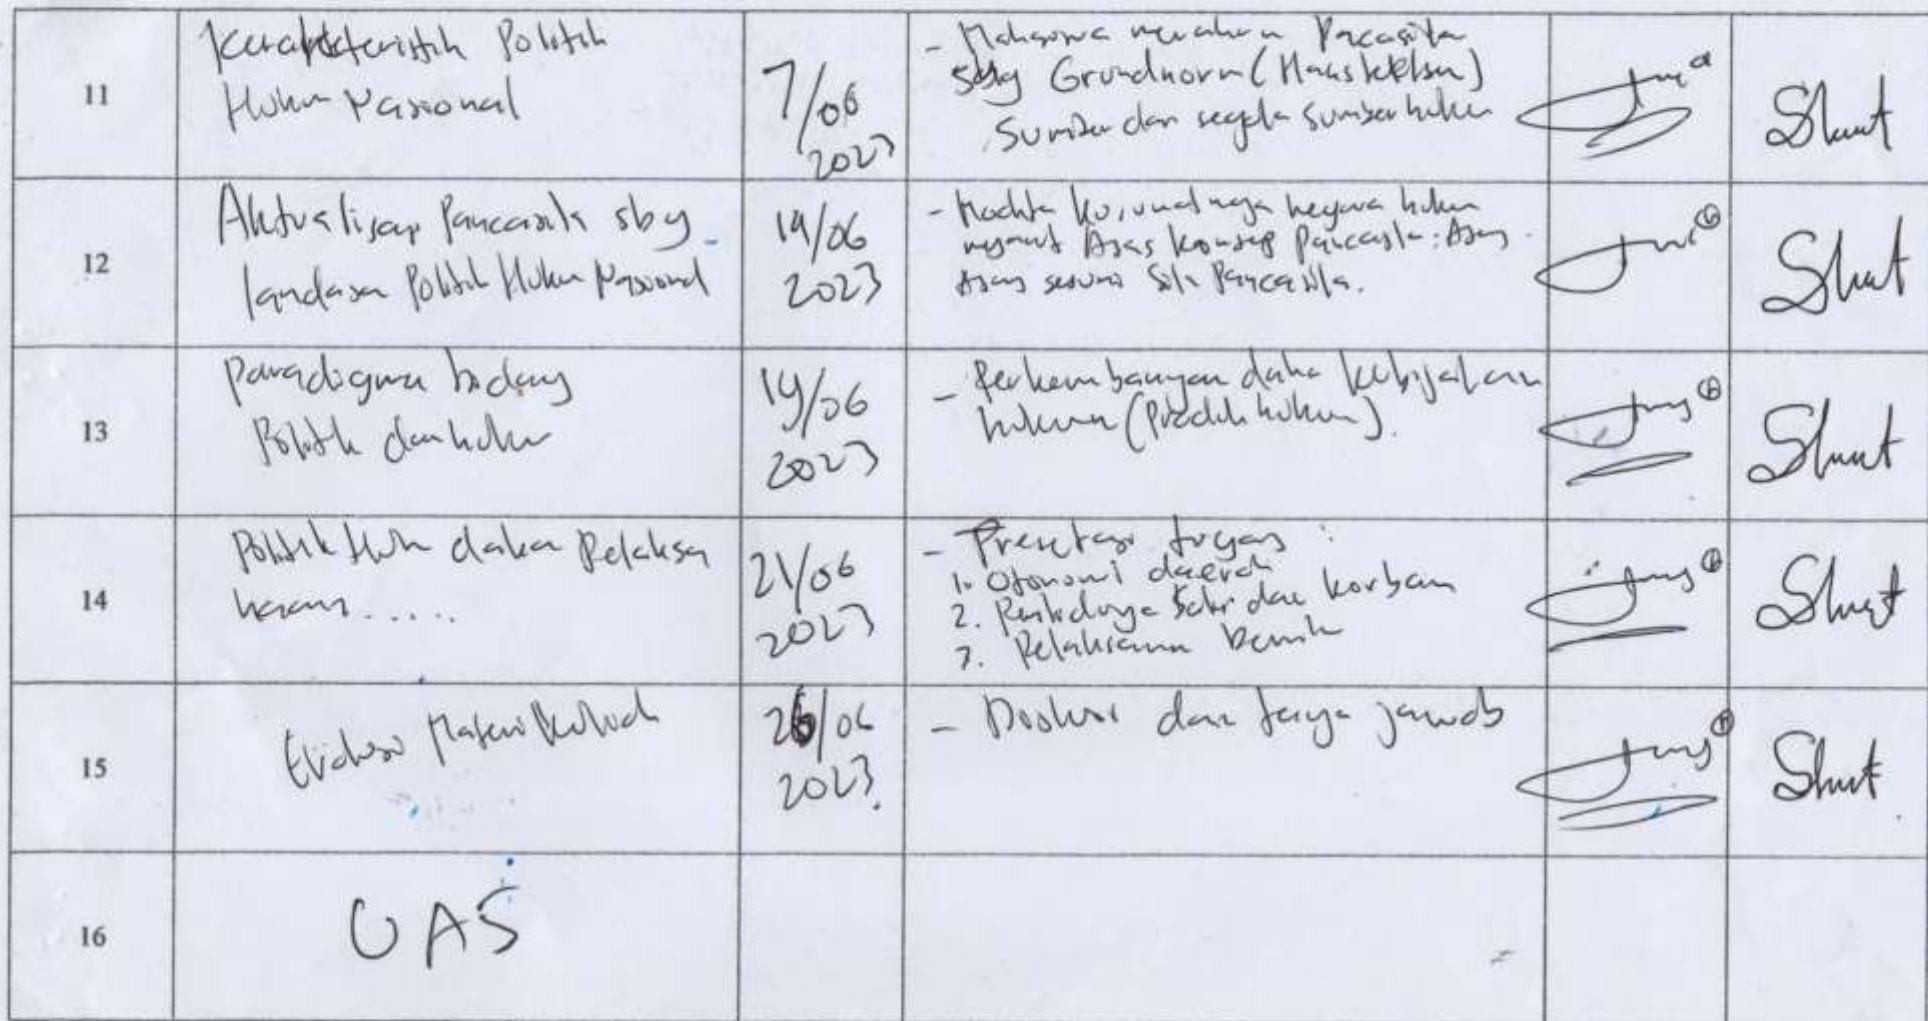 11
Karakteristik Politik
Hukum Nasional
7/06
2023
- Mahasiswa Pancasila
sbg Grundnorm (Hans Kelsen)
Sumber dari segala sumber hukum
Shut
12
Aktualisasi Pancasila sbg
landasan Politik Hukum Nasional
14/06
2023
- Mochtar Kusumaatmaja negara hukum
menurut Asas Konsep Pancasila: Asas
Asas sesuai Sila Pancasila.
Shut
13
Paradigma bidang
Politik dan hukum
19/06
2023
- Perkembangan dalam kebijakan
hukum (Produk hukum).
Shut
14
Politik Hukum dalam Pelaksa
naan.....
21/06
2023
- Presentasi tugas :
1. Otonomi daerah
2. saksi dan korban
3. Pelaksanaan
Shut
15
Evaluasi Materi Kuliah
26/06
2023.
- Diskusi dan tanya jawab
Shut
16
UAS